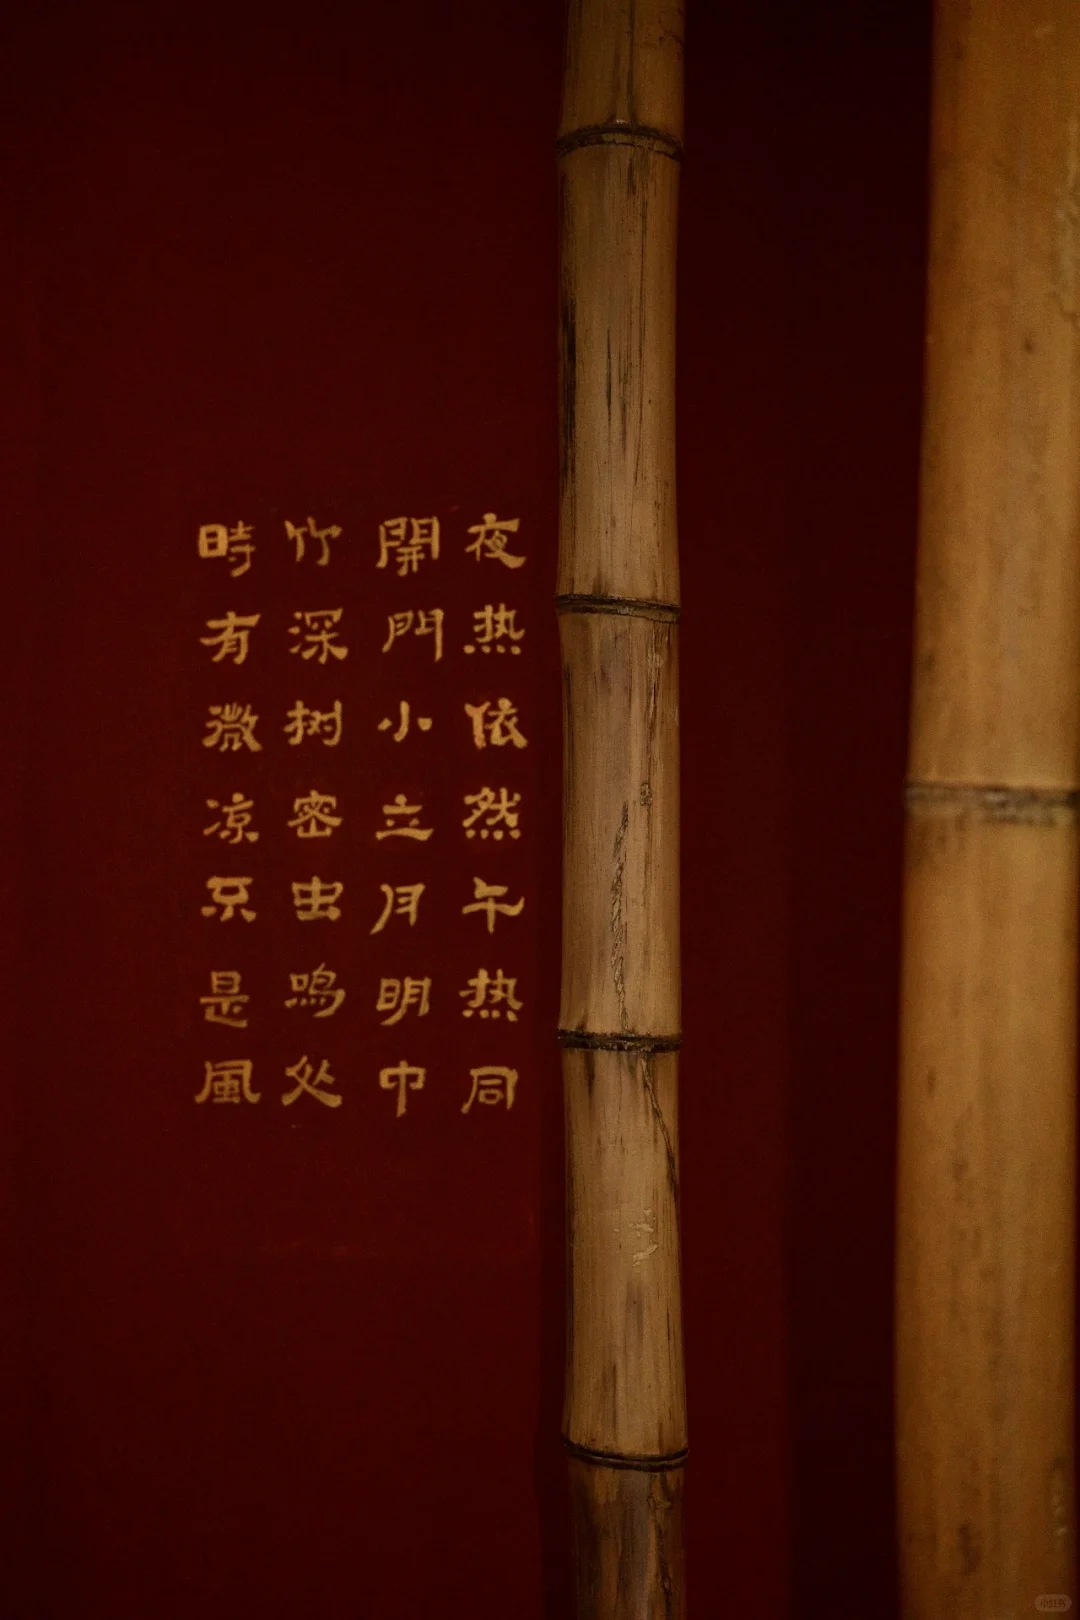 夜热依然午热同
開門小立月明中
竹深树密虫鸣处
時有微凉不是風
小红书